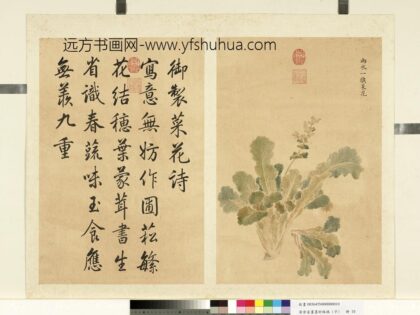 远方书画网-www.yfshuhua.com
雨水一候菜花
御製菜花詩
寫意無妨作圃菘繁
花結穗葉蒙茸書生
省識春蔬味玉食應
無羨九重